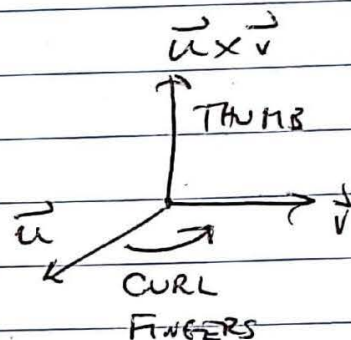 u⃗ × v⃗
THUMB
u⃗
v⃗
CURL
FINGERS